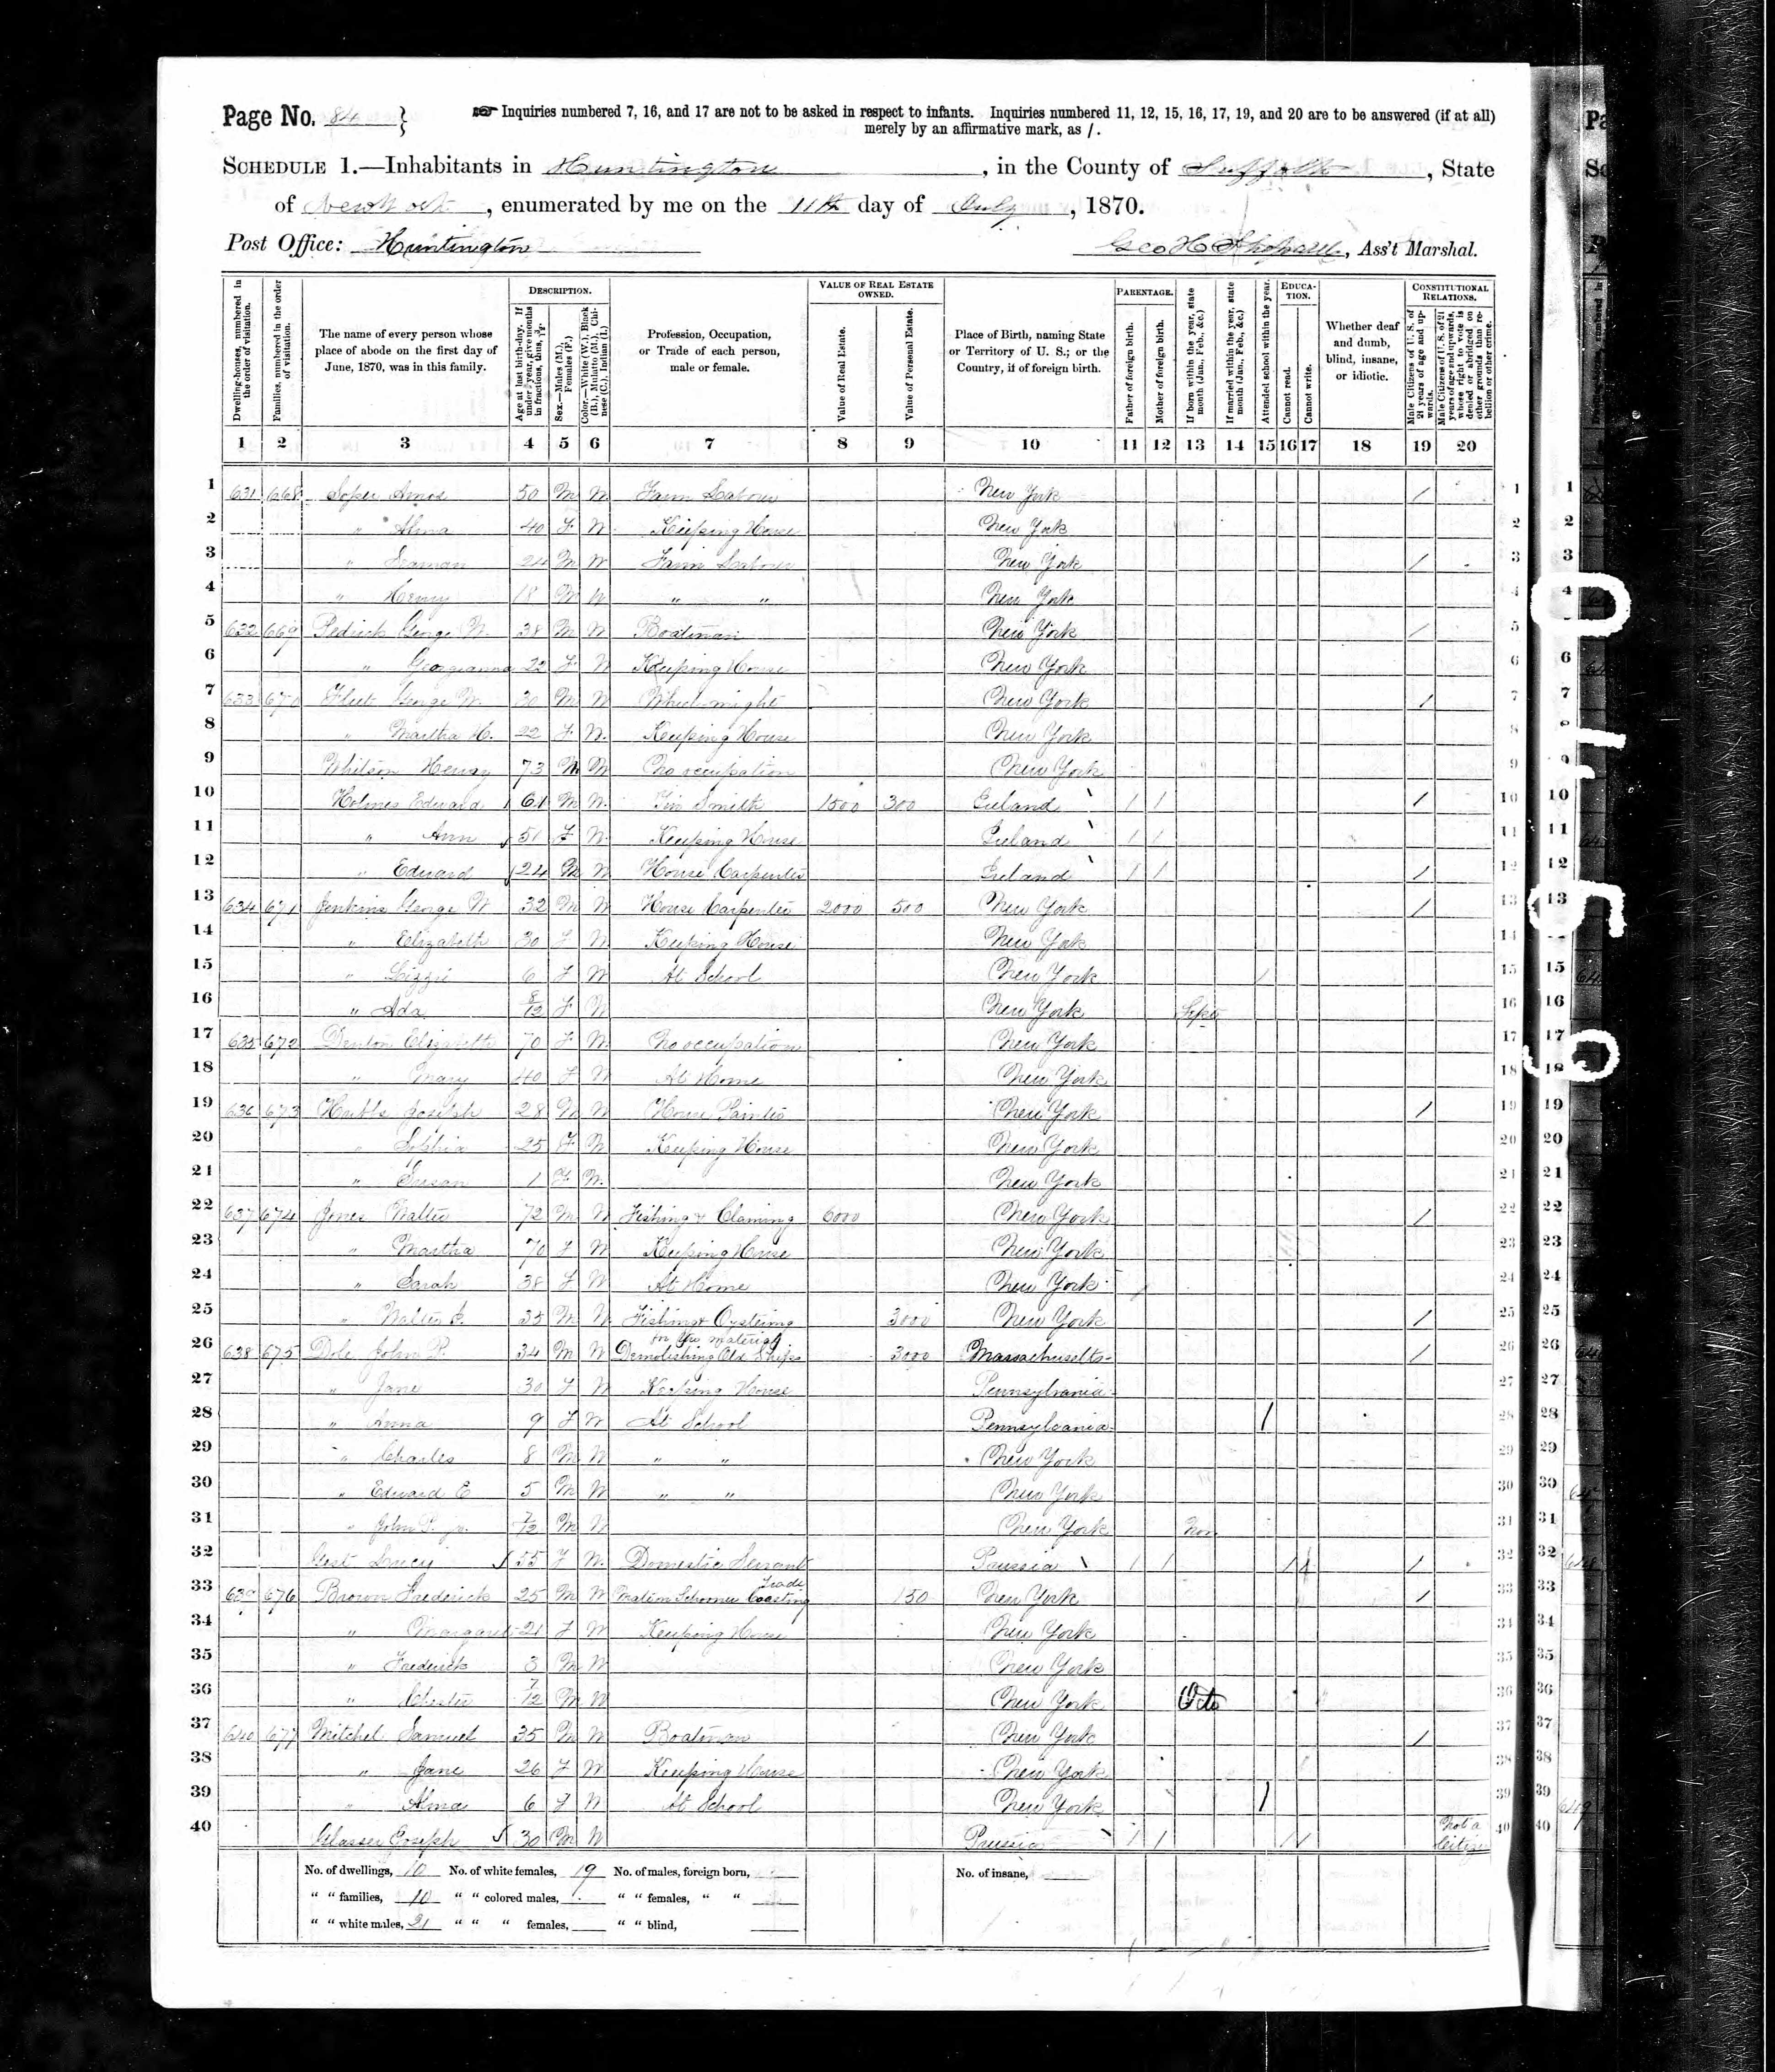 Page No. 84
☞ Inquiries numbered 7, 16, and 17 are not to be asked in respect to infants. Inquiries numbered 11, 12, 15, 16, 17, 19, and 20 are to be answered (if at all)
merely by an affirmative mark, as /.
SCHEDULE 1.—Inhabitants in Huntington, in the County of Suffolk, State
of New York, enumerated by me on the 11th day of July, 1870.
Post Office: Huntington
Geo H Shepard, Ass't Marshal.
Dwelling-houses, numbered in the order of visitation.
Families, numbered in the order of visitation.
The name of every person whose place of abode on the first day of June, 1870, was in this family.
DESCRIPTION.
Age at last birth-day. If under 1 year, give months in fractions, thus, 3/12
Sex.—Males (M.), Females (F.)
Color.—White (W.), Black (B.), Mulatto (M.), Chinese (C.), Indian (I.)
Profession, Occupation, or Trade of each person, male or female.
VALUE OF REAL ESTATE OWNED.
Value of Real Estate.
Value of Personal Estate.
Place of Birth, naming State or Territory of U. S.; or the Country, if of foreign birth.
PARENTAGE.
Father of foreign birth.
Mother of foreign birth.
If born within the year, state month (Jan., Feb., &c.)
If married within the year, state month (Jan., Feb., &c.)
Attended school within the year.
EDUCATION.
Cannot read.
Cannot write.
Whether deaf and dumb, blind, insane, or idiotic.
CONSTITUTIONAL RELATIONS.
Male Citizens of U. S. of 21 years of age and upwards.
Male Citizens of U. S. of 21 years of age and upwards, whose right to vote is denied or abridged on other grounds than rebellion or other crime.
1 2 3 4 5 6 7 8 9 10 11 12 13 14 15 16 17 18 19 20
1 631 668 Soper Amos 50 M W Farm Labour New York / 1
2 " Alma 40 F W Keeping House New York 2
3 " Seaman 24 M W Farm Labour New York / 3
4 " Henry 18 M W " " New York 4
5 632 669 Pedrick George W. 38 M W Boatman New York / 5
6 " Georgianna 22 F W Keeping House New York 6
7 633 670 Fleet George W. 30 M W Wheelwright New York / 7
8 " Martha H. 22 F W. Keeping House New York 8
9 Whitson Henry 73 M W No occupation New York 9
10 Holmes Edward 61 M W. Tin Smith 1500 300 Ireland / / / 10
11 " Ann 51 F W. Keeping House Ireland / / 11
12 " Edward 24 M W House Carpenter Ireland / / / 12
13 634 671 Jenkins George W 32 M W House Carpenter 2000 500 New York / 13
14 " Elizabeth 30 F W Keeping House New York 14
15 " Lizzie 6 F W At School New York / 15
16 " Ada 8/12 F W New York Sept 16
17 635 672 Denton Elizabeth 70 F W. No occupation New York 17
18 " Mary 40 F W At Home New York 18
19 636 673 Hubbs Joseph 28 M W House Painter New York / 19
20 " Sophia 25 F W Keeping House New York 20
21 " Susan 1 F W. New York 21
22 637 674 Jones Walter 72 M W Fishing & Claming 6000 New York / 22
23 " Martha 70 F W Keeping House New York 23
24 " Sarah 38 F W At Home New York 24
25 " Walter 35 M W Fishing & Oystering 3000 New York / 25
for the material
26 638 675 Dole John P. 34 M W Demolishing Old Ships 3000 Massachusetts / 26
27 " Jane 30 F W Keeping House Pennsylvania 27
28 " Anna 9 F W At School Pennsylvania / 28
29 " Charles 8 M W " " New York 29
30 " Edward E 5 M W " " New York 30
31 " John P. jr. 7/12 M W New York Nov 31
32 Lucy 55 F W. Domestic Servant Prussia / / / / / 32
Trade
33 639 676 Brown Frederick 25 M W Schooner Coasting 150 New York / 33
34 " Margaret 21 F W Keeping House New York 34
35 " Frederick 3 M W New York 35
36 " Chester 7/12 M W New York Oct 36
37 640 677 Mitchel Samuel 35 M W Boatman New York / 37
38 " Jane 26 F W Keeping House New York 38
39 " Alma 6 F W At School New York / 39
40 Glasser Joseph 30 M W Prussia / / / / Not a Citizen 40
No. of dwellings, 10 No. of white females, 19 No. of males, foreign born, No. of insane,
" " families, 10 " " colored males, " " females, " "
" " white males, 21 " " " females, " " blind,